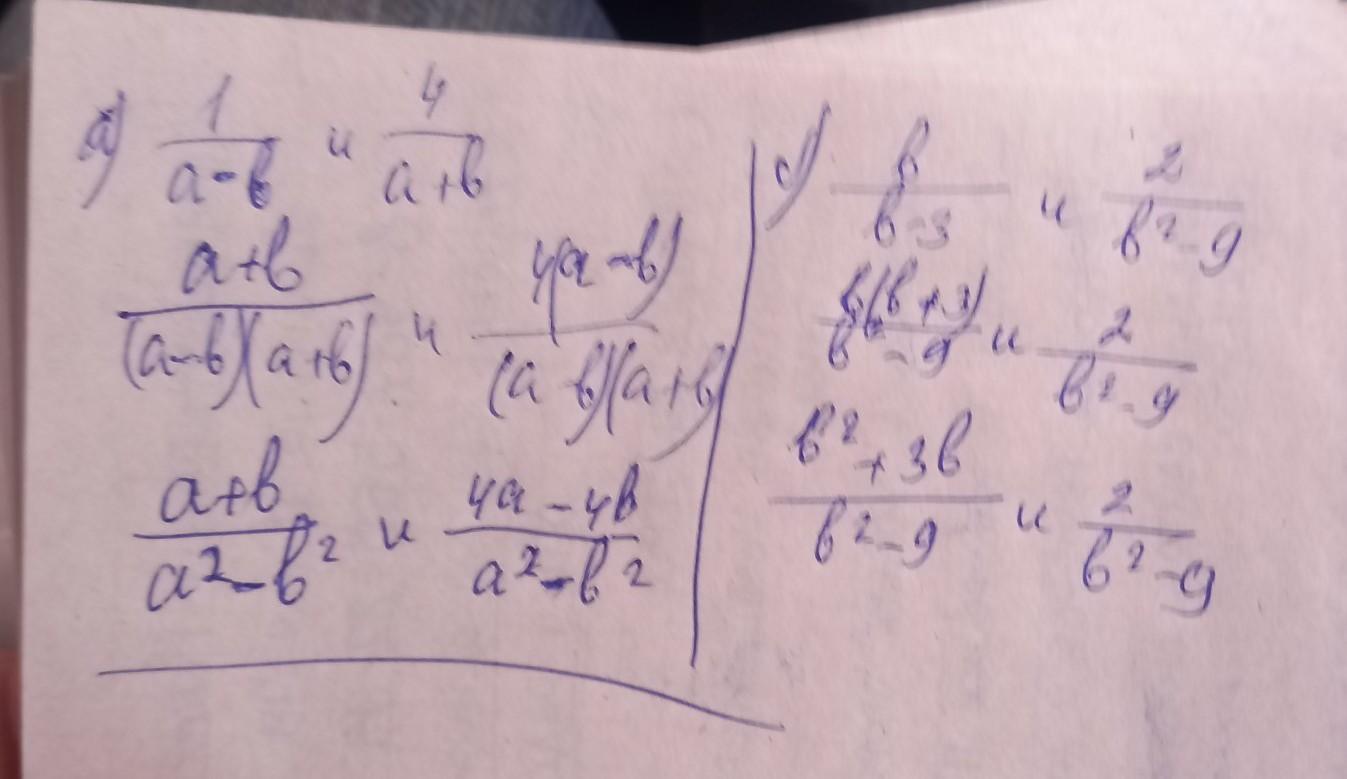 а) 1/(a-b) и 4/(a+b)
(a+b)/((a-b)(a+b)) и 4(a-b)/((a-b)(a+b))
(a+b)/(a²-b²) и (4a-4b)/(a²-b²)
с) b/(b-3) и 2/(b²-9)
b(b+3)/(b²-9) и 2/(b²-9)
(b²+3b)/(b²-9) и 2/(b²-9)